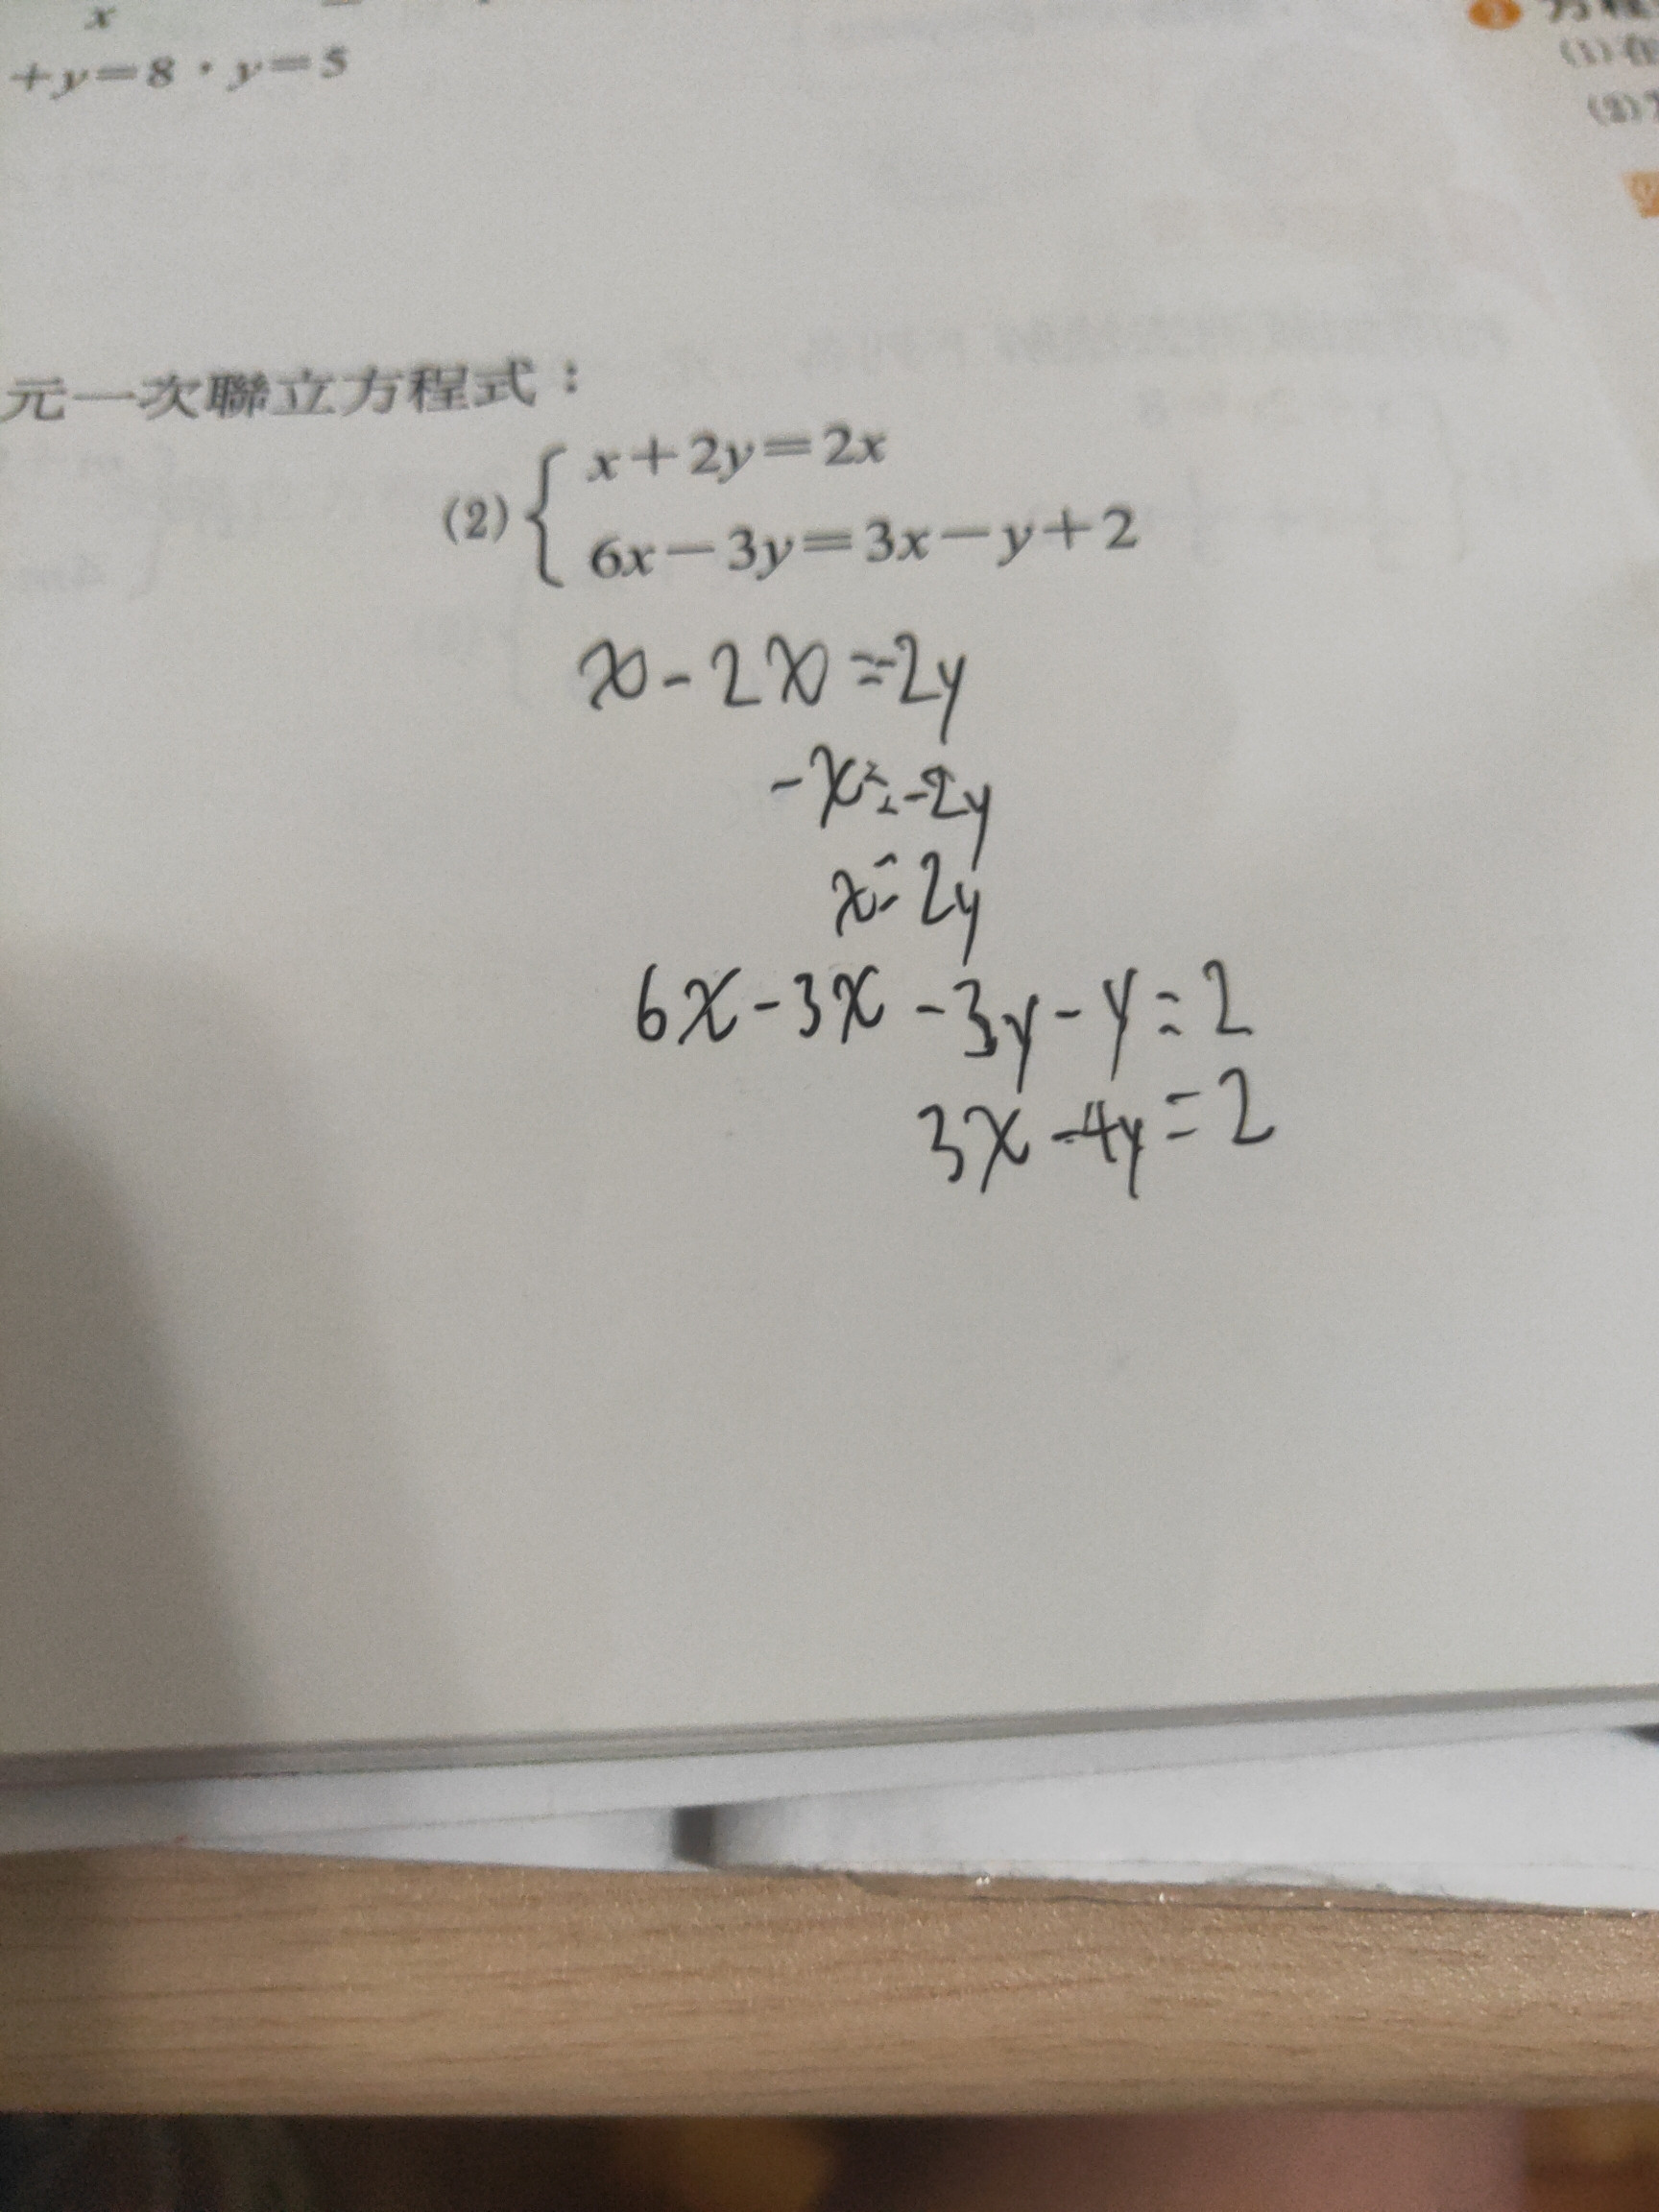 x
+y=8，y=5
(1)在
(2)
元一次聯立方程式：
(2) { x+2y=2x
6x-3y=3x-y+2
x-2x=-2y
-x=-2y
x=2y
6x-3x-3y-y=2
3x-4y=2